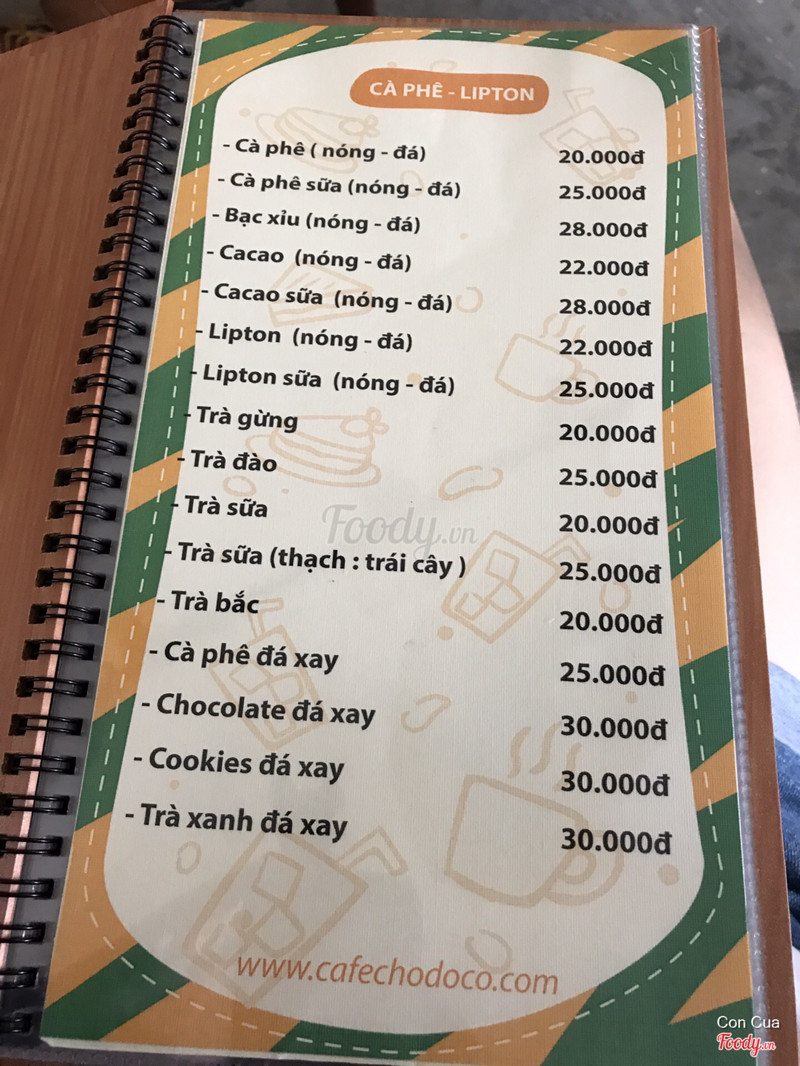 CÀ PHÊ - LIPTON
- Cà phê ( nóng - đá) 20.000đ
- Cà phê sữa (nóng - đá) 25.000đ
- Bạc xỉu (nóng - đá) 28.000đ
- Cacao (nóng - đá) 22.000đ
- Cacao sữa (nóng - đá) 28.000đ
- Lipton (nóng - đá) 22.000đ
- Lipton sữa (nóng - đá) 25.000đ
- Trà gừng 20.000đ
- Trà đào 25.000đ
- Trà sữa 20.000đ
- Trà sữa (thạch : trái cây ) 25.000đ
- Trà bắc 20.000đ
- Cà phê đá xay 25.000đ
- Chocolate đá xay 30.000đ
- Cookies đá xay 30.000đ
- Trà xanh đá xay 30.000đ
www.cafechodoco.com
Foody.vn
Con Cua
Foody.vn